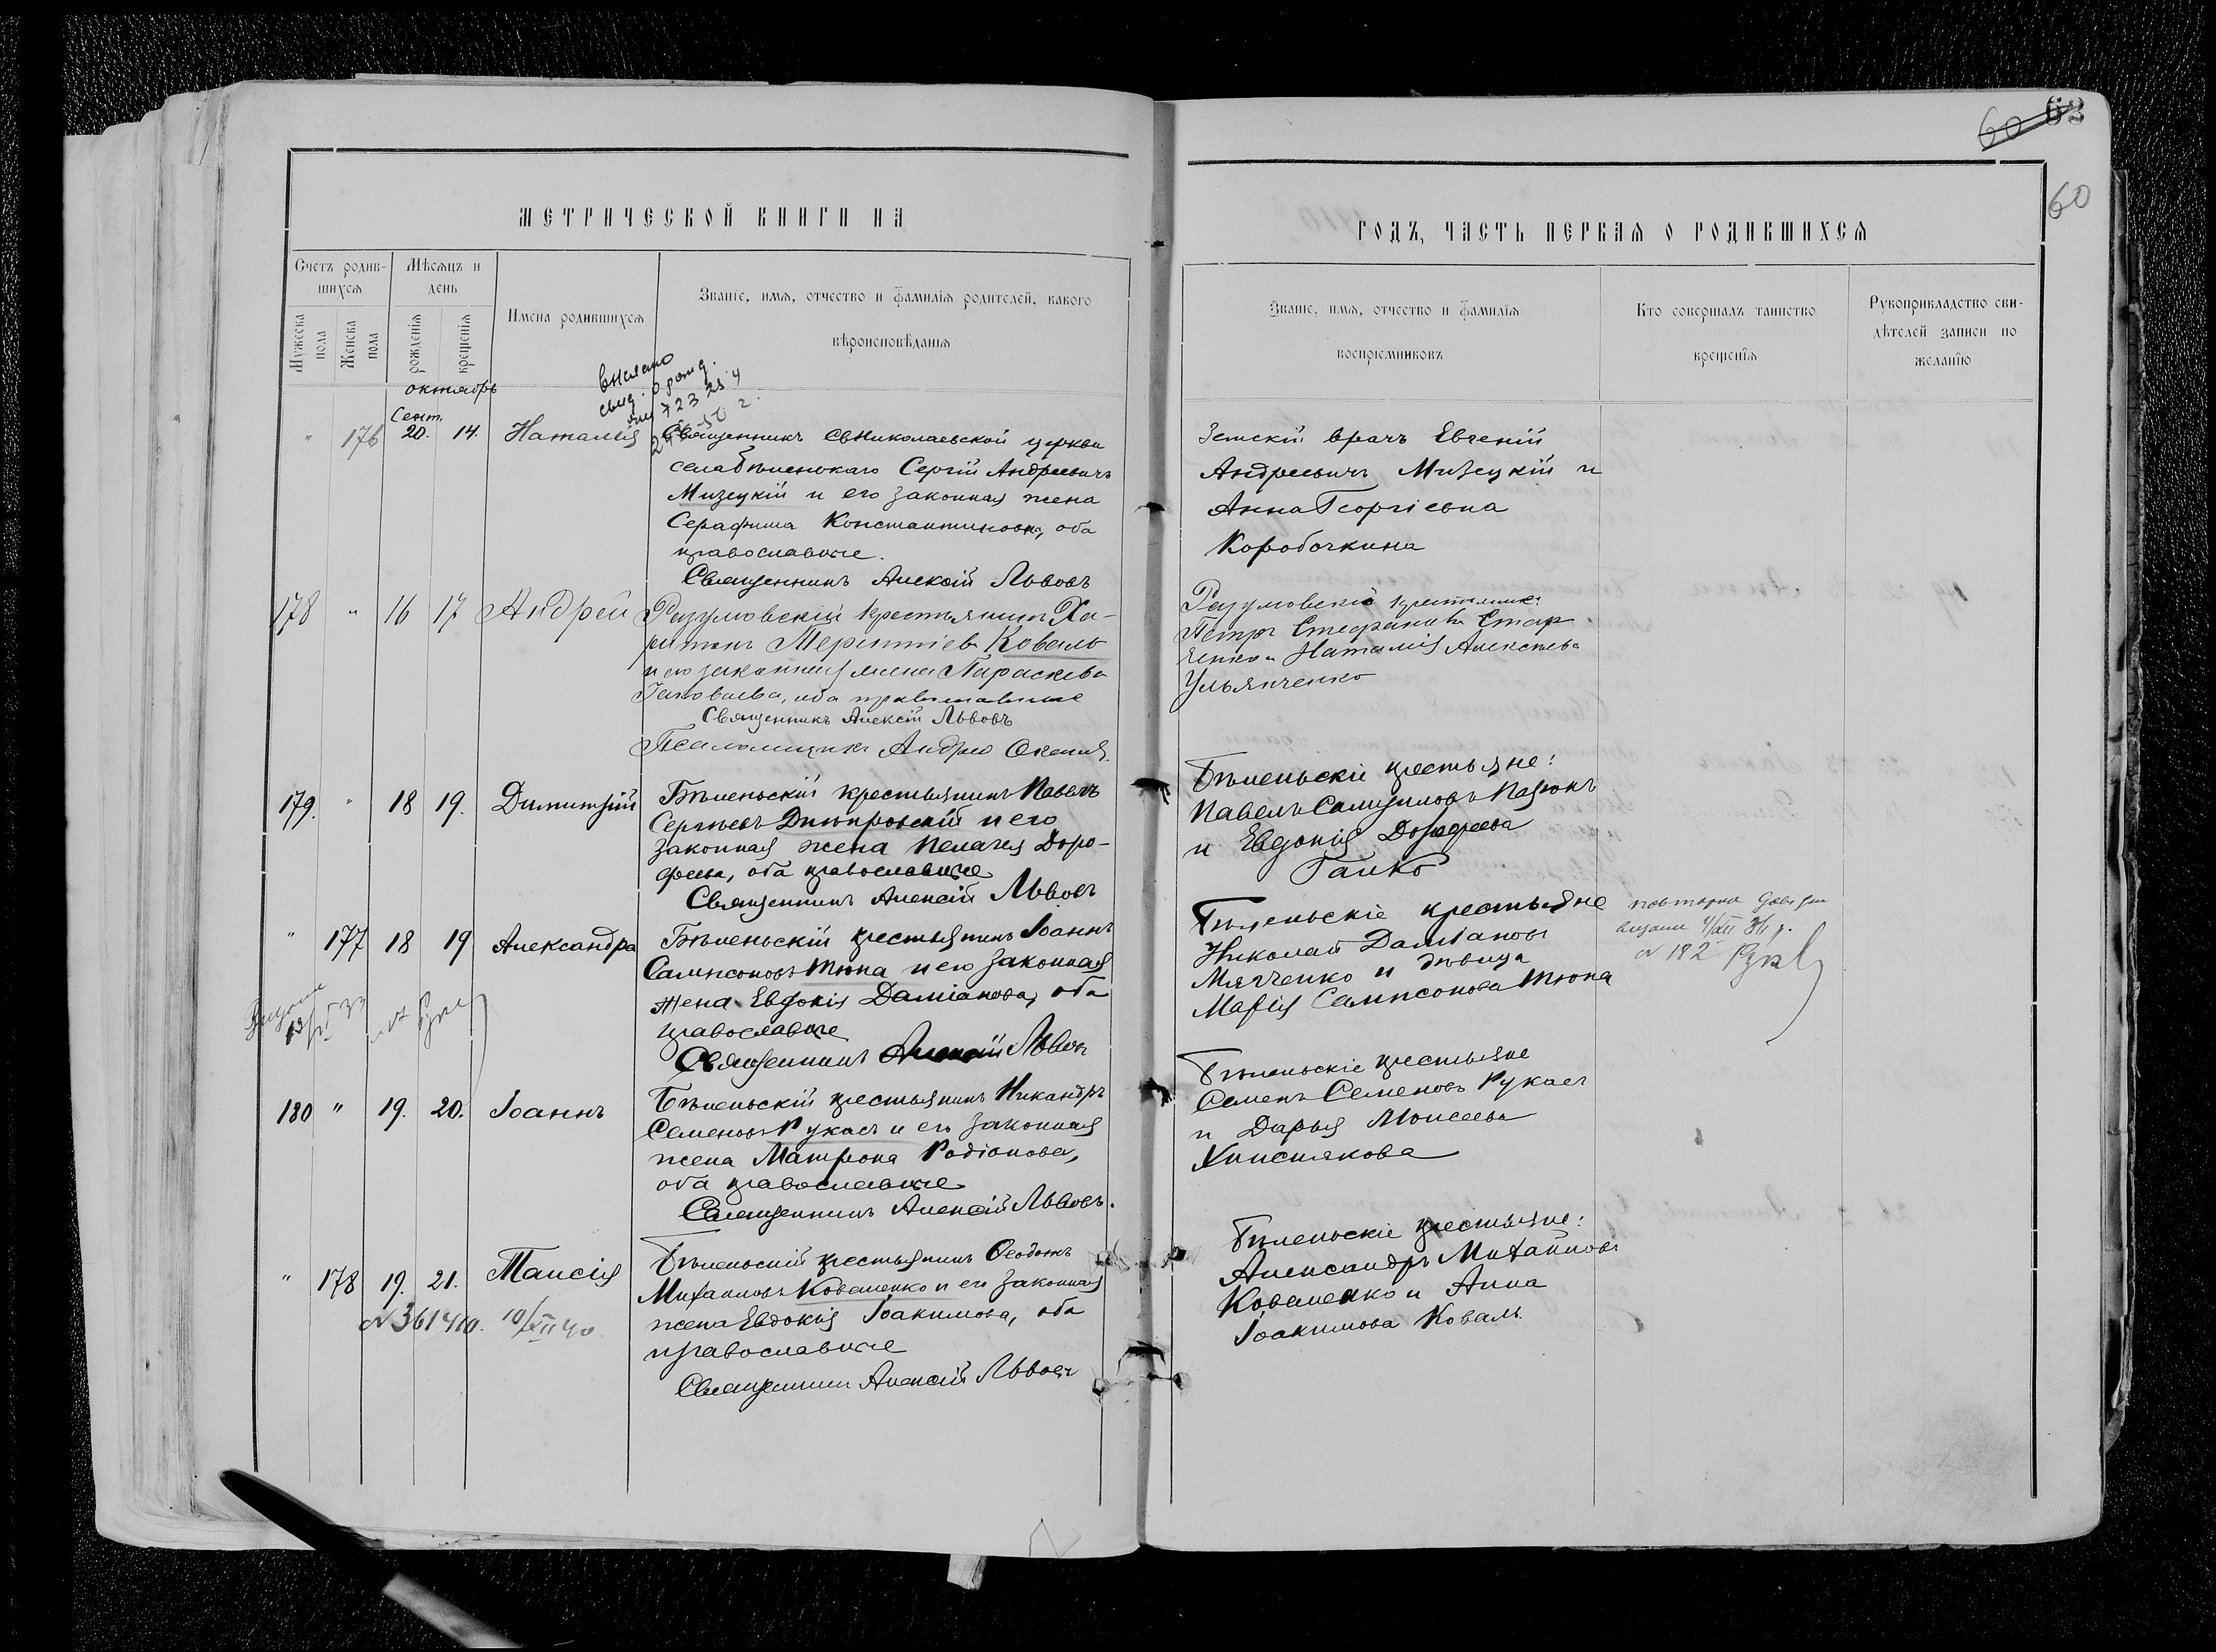 60 63
60
МЕТРИЧЕСКОЙ КНИГИ НА
ГОДЪ, ЧАСТЬ ПЕРВАЯ О РОДИВШИХСЯ
Счетъ родив-
шихся
Мѣсяцъ и
день
Мужеска
пола
Женска
пола
рожденія
крещенія
Имена родившихся
Званіе, имя, отчество и фамилія родителей, какого
вѣроисповѣданія
Званіе, имя, отчество и фамилія
воспріемниковъ
Кто совершалъ таинство
крещенія
Рукоприкладство сви-
дѣтелей записи по
желанію
октябрь
выслано
свид. о рожд.
Сент.
" 176 20. 14. Наталія
Священникъ Св Николаевской церкви
села Бѣленькаго Сергій Андреевичъ
Мизецкій и его законная жена
Серафима Константиновна, оба
православные.
Священникъ Алексій Львовъ
Земскій врачъ Евгеній
Андреевичъ Мизецкій и
Анна Георгіевна
Коробочкина
178 " 16 17 Андрей
Разумовскій крестьянинъ Ха-
ритонъ Терентіевъ Коваль
и его законная жена Параскева
оба православные
Священникъ Алексій Львовъ
Псаломщикъ Андрей
Разумовскіе крестьяне:
Петръ Стефановъ
и Наталія Алексѣева
Ульянченко
179. " 18 19. Димитрій
Бѣленьскій крестьянинъ Павелъ
Сергѣевъ Днѣпровскій и его
законная жена Пелагея Доро-
феева, оба православные
Священникъ Алексій Львовъ
Бѣленьскіе крестьяне:
Павелъ Самуиловъ Пазюкъ
и Евдокія Дорофеева
Галко
" 177 18 19 Александра
Бѣленьскій крестьянинъ Іоаннъ
Сампсоновъ Тюпа и его законная
жена Евдокія Даміанова, оба
православные
Священникъ Алексій Львовъ
Бѣленьскіе крестьяне
Николай Даміановъ
Мягченко и дѣвица
Марія Сампсонова Тюпа
N 182
180 " 19. 20. Іоаннъ
Бѣленьскій крестьянинъ Никандръ
Семеновъ Рукасъ и его законная
жена Матрона Родіонова,
оба православные
Священникъ Алексій Львовъ.
Бѣленьскіе крестьяне
Семенъ Семеновъ Рукасъ
и Дарья Моисеева
" 178 19. 21. Таисія
N 361410. 10/XII 40
Бѣленьскій крестьянинъ Ѳеодотъ
Михаиловъ Коваленко и его законная
жена Евдокія Іоакимова, оба
православные
Священникъ Алексій Львовъ
Бѣленьскіе крестьяне:
Александръ Михайловъ
Коваленко и Анна
Іоакимова Коваль.